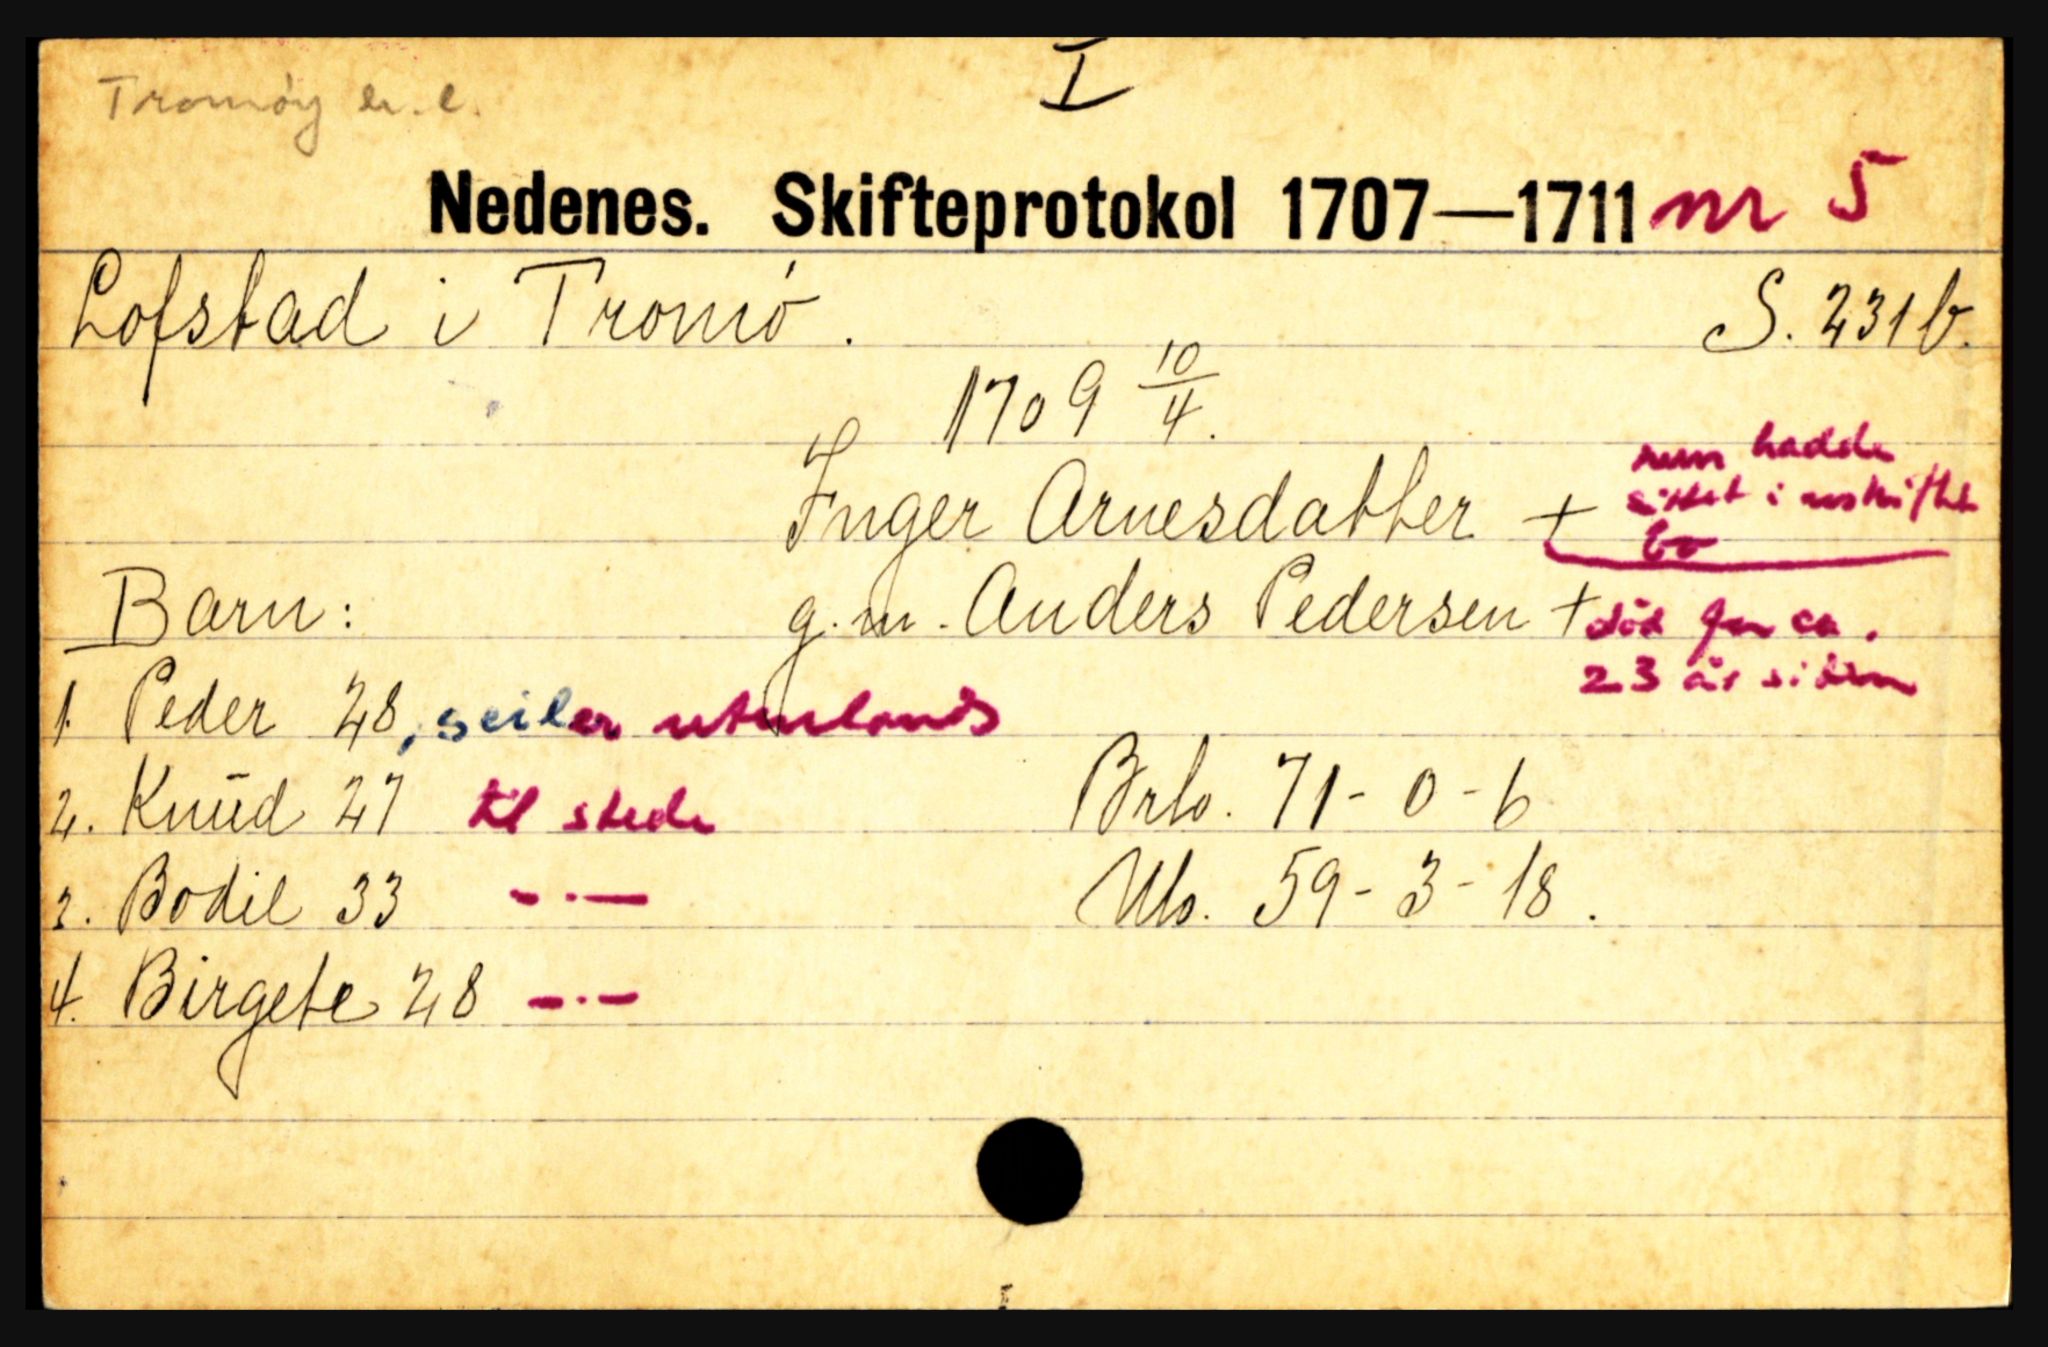 Tromøy
I
Nedenes. Skifteprotokol 1707—1711 nr 5
Lofstad i Tromö.
S. 231 b.
1709 10/4.
Inger Arnesdatter + hun hadde
sittet i uskiftet
bo
Barn:
g.m. Anders Pedersen + død for ca.
23 år siden
1. Peder 28, seiler utenlands
2. Knŭd 27 til stede
Brb. 71-0-6
3. Bodil 33 -·—
Nb. 59-3-18.
4. Birgete 28 -·-